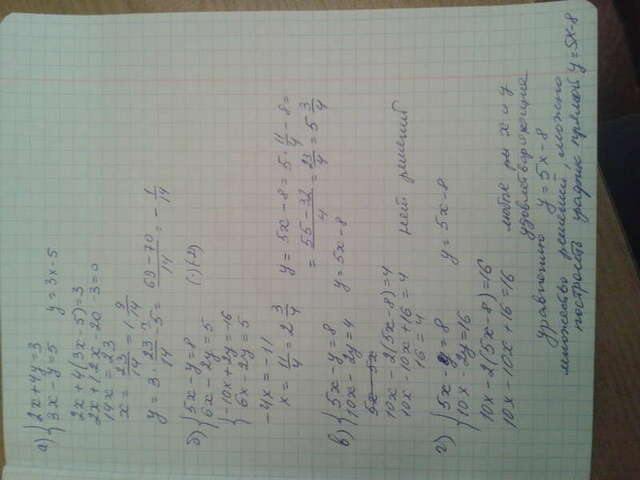 а) { 2x+4y=3
3x-y=5 y=3x-5
2x+4(3x-5)=3
2x+12x-20-3=0
14x=23
x=23/14=1 9/14
y=3·23/14-5=69-70/14=-1/14
б) { 5x-y=8 (·)(-2)
6x-2y=5
{ -10x+2y=-16
6x-2y=5
-4x=-11
x=11/4=2 3/4
y=5x-8=5·11/4-8=
=55-32/4=23/4=5 3/4
в) { 5x-y=8 y=5x-8
10x-2y=4
10x-2(5x-8)=4
10x-10x+16=4
16=4 нет решений
г) { 5x-y=8 y=5x-8
10x-2y=16
10x-2(5x-8)=16
10x-10x+16=16 любые ры x и y
удовлетворяющие
уравнению y=5x-8
множество решений, можно
построить график прямой y=5x-8